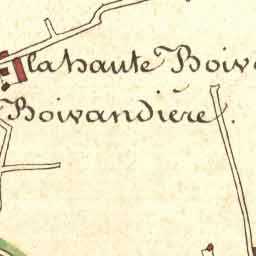 la haute Boiv
Boivandiére.